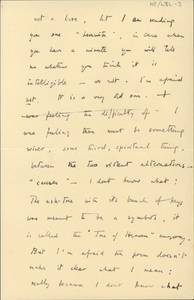 not a line, but I am sending
you one "favourite", in case when
you have a minute you will tell
me whether you think it is
intelligible — or not. I'm afraid
not. It is a very old one. I
was feeling the difficulty of. I
was feeling there must be something
wiser, some third, spiritual thing,
between the two violent alternatives —
"causes" — I don't know what.
The ash-tree with its bunch of keys
was meant to be a symbol, it
is called the "Tree of Heaven" anyway.
But I'm afraid the poem doesn't
make it clear what I mean:
really because I don't know what